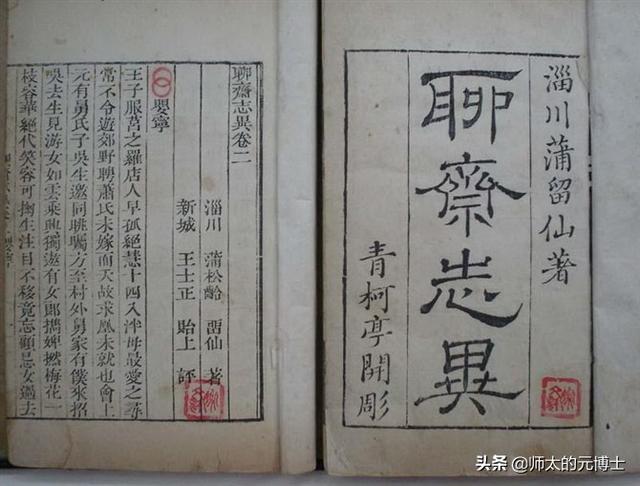 淄川蒲留仙著
聊齋志異
青柯亭開彫
聊齋志異卷二
淄川 蒲松齡 畱仙 著
新城 王士正 貽上 評
嬰寧
王子服莒之羅店人早孤絕慧十四入泮母最愛之尋
常不令遊郊野聘蕭氏未嫁而夭故求凰未就也會上
元有舅氏子吳生邀同眺矚方至村外舅家有僕來招
吳去生見游女如雲乘興獨遨有女郎攜婢撚梅花一
枝容華絕代笑容可掬生注目不移竟忘顧忌女過去
头条 @师太的元博士